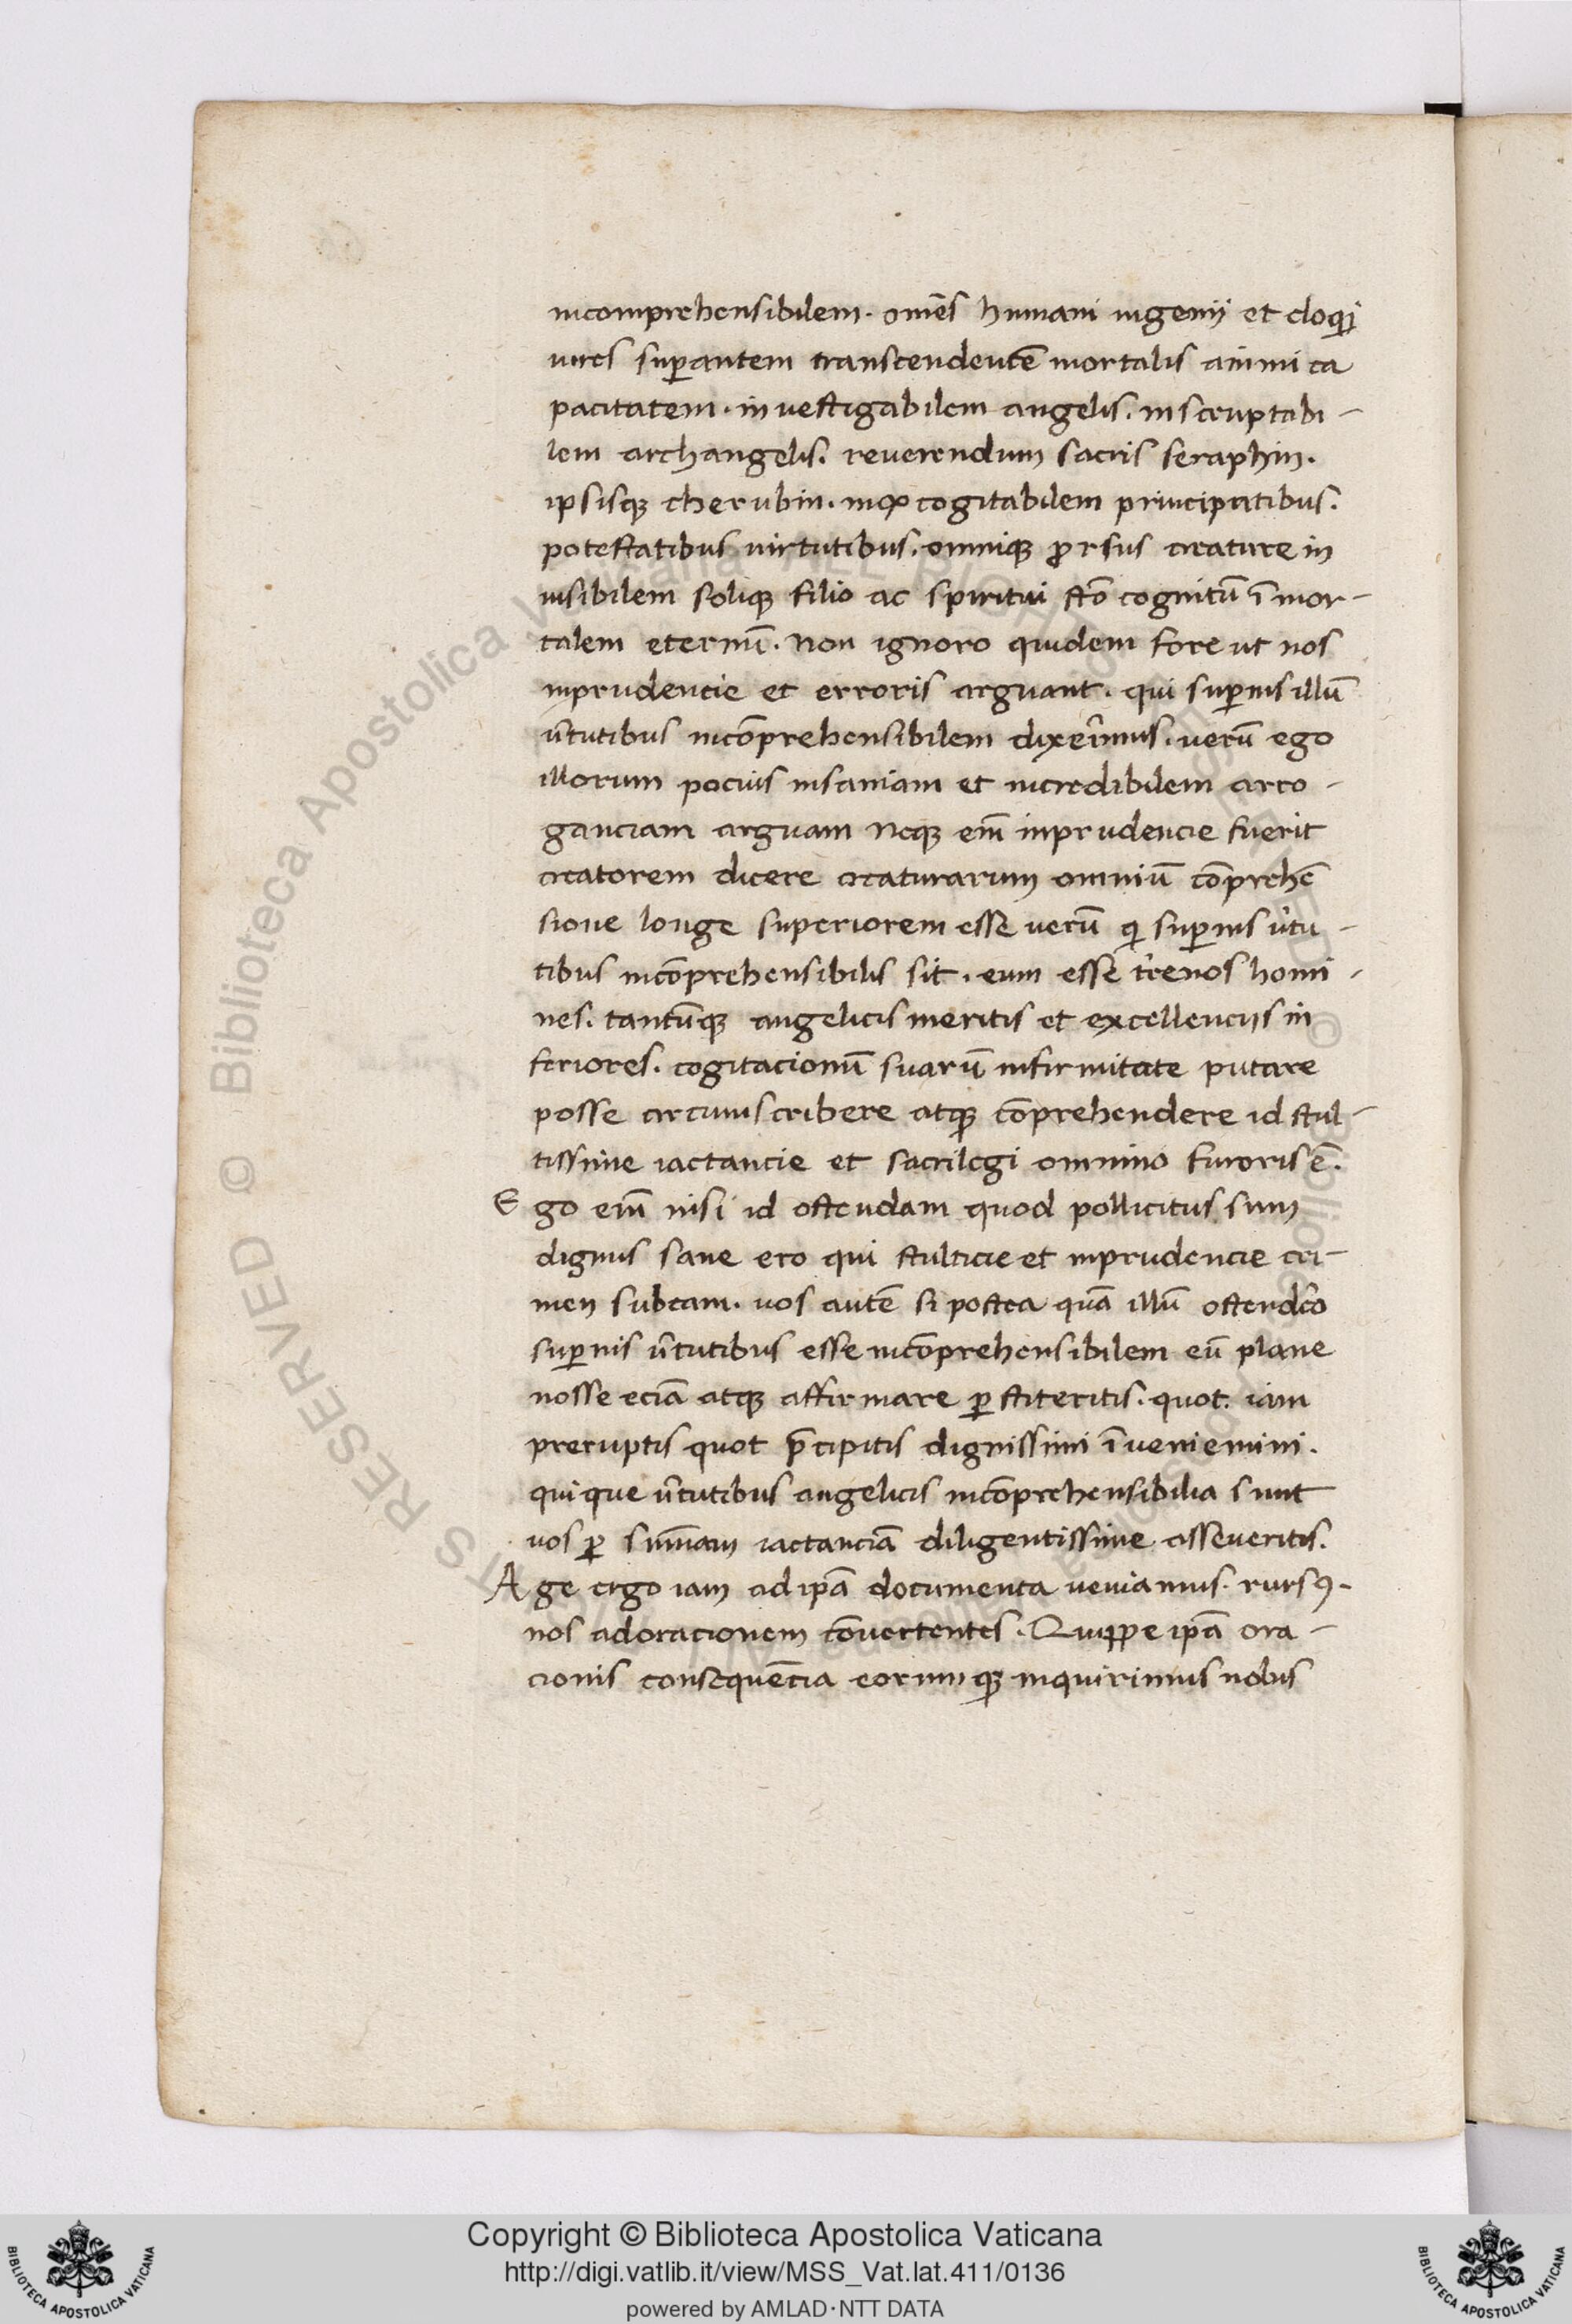 incomprehensibilem. om̄es humani ingenij et eloq̨ꝫ
uires suꝑantem transcendentē mortalis animi ca
pacitatem. inuestigabilem angelis. inscruptabi-
lem archangelis. reuerendum sacris seraphin.
ipsisqꝫ cherubin. cogitabilem principatibus.
potestatibus uirtutibus. omniqꝫ ꝓrsus creature in
uisibilem soliqꝫ filio ac spiritui sc̄o cognitū ī mor-
talem eternū. Non ignoro quidem fore ut nos
inprudencie et erroris arguant. qui suꝑnis illū
ūtutibus incōprehensibilem dixerīmus. uerū ego
illorum pocius insaniam et incredibilem arro-
ganciam arguam Neqꝫ em̄ inprudencie fuerit
creatorem dicere creaturarum omniū cōprehē
sione longe superiorem esse uerū qi suꝑnis ūtu-
tibus incōprehensibilis sit. eum esse t'renos homi-
nes. tantūqꝫ angelicis meritis et excellenciis in
feriores. cogitacionū suarū infirmitate putare
posse circumscribere atqꝫ cōprehendere id stul-
tissime iactancie et sacrilegi omnino furoris ē.
Ego em̄ nisi id ostendam quod pollicitus sum
dignus sane ero qui stulticie et inprudencie cri-
men subeam. uos autē si postea quā illū ostend'o
suꝑnis ūtutibus esse incōprehensibilem eū plane
nosse eciā atqꝫ affirmare ꝑstiteritis. quot iam
preruptis quot p̄cipitis dignissimi īueniemini.
quique ūtutibus angelicis incōprehensibilia sunt
uos ꝑ sum̄am iactanciā diligentissime asseueritis.
Age ergo iam ad ip̄a documenta ueniamus. rursꝰ.
nos adoracionem cōuertentes. Quippe ip̄a ora-
cionis consequēcia eorumqꝫ inquirimus nobis
Copyright © Biblioteca Apostolica Vaticana
http://digi.vatlib.it/view/MSS_Vat.lat.411/0136
powered by AMLAD·NTT DATA